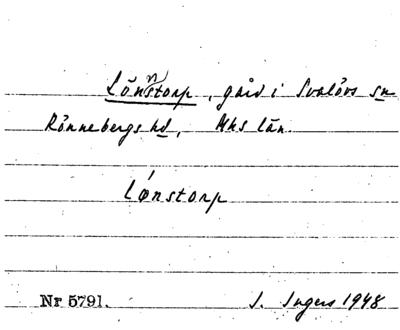 Lönnstorp, gård i Svalövs sn
Rönnebergs hd, Mhs län.
Lønstorp
Nr 5791. I. Ingers 1948